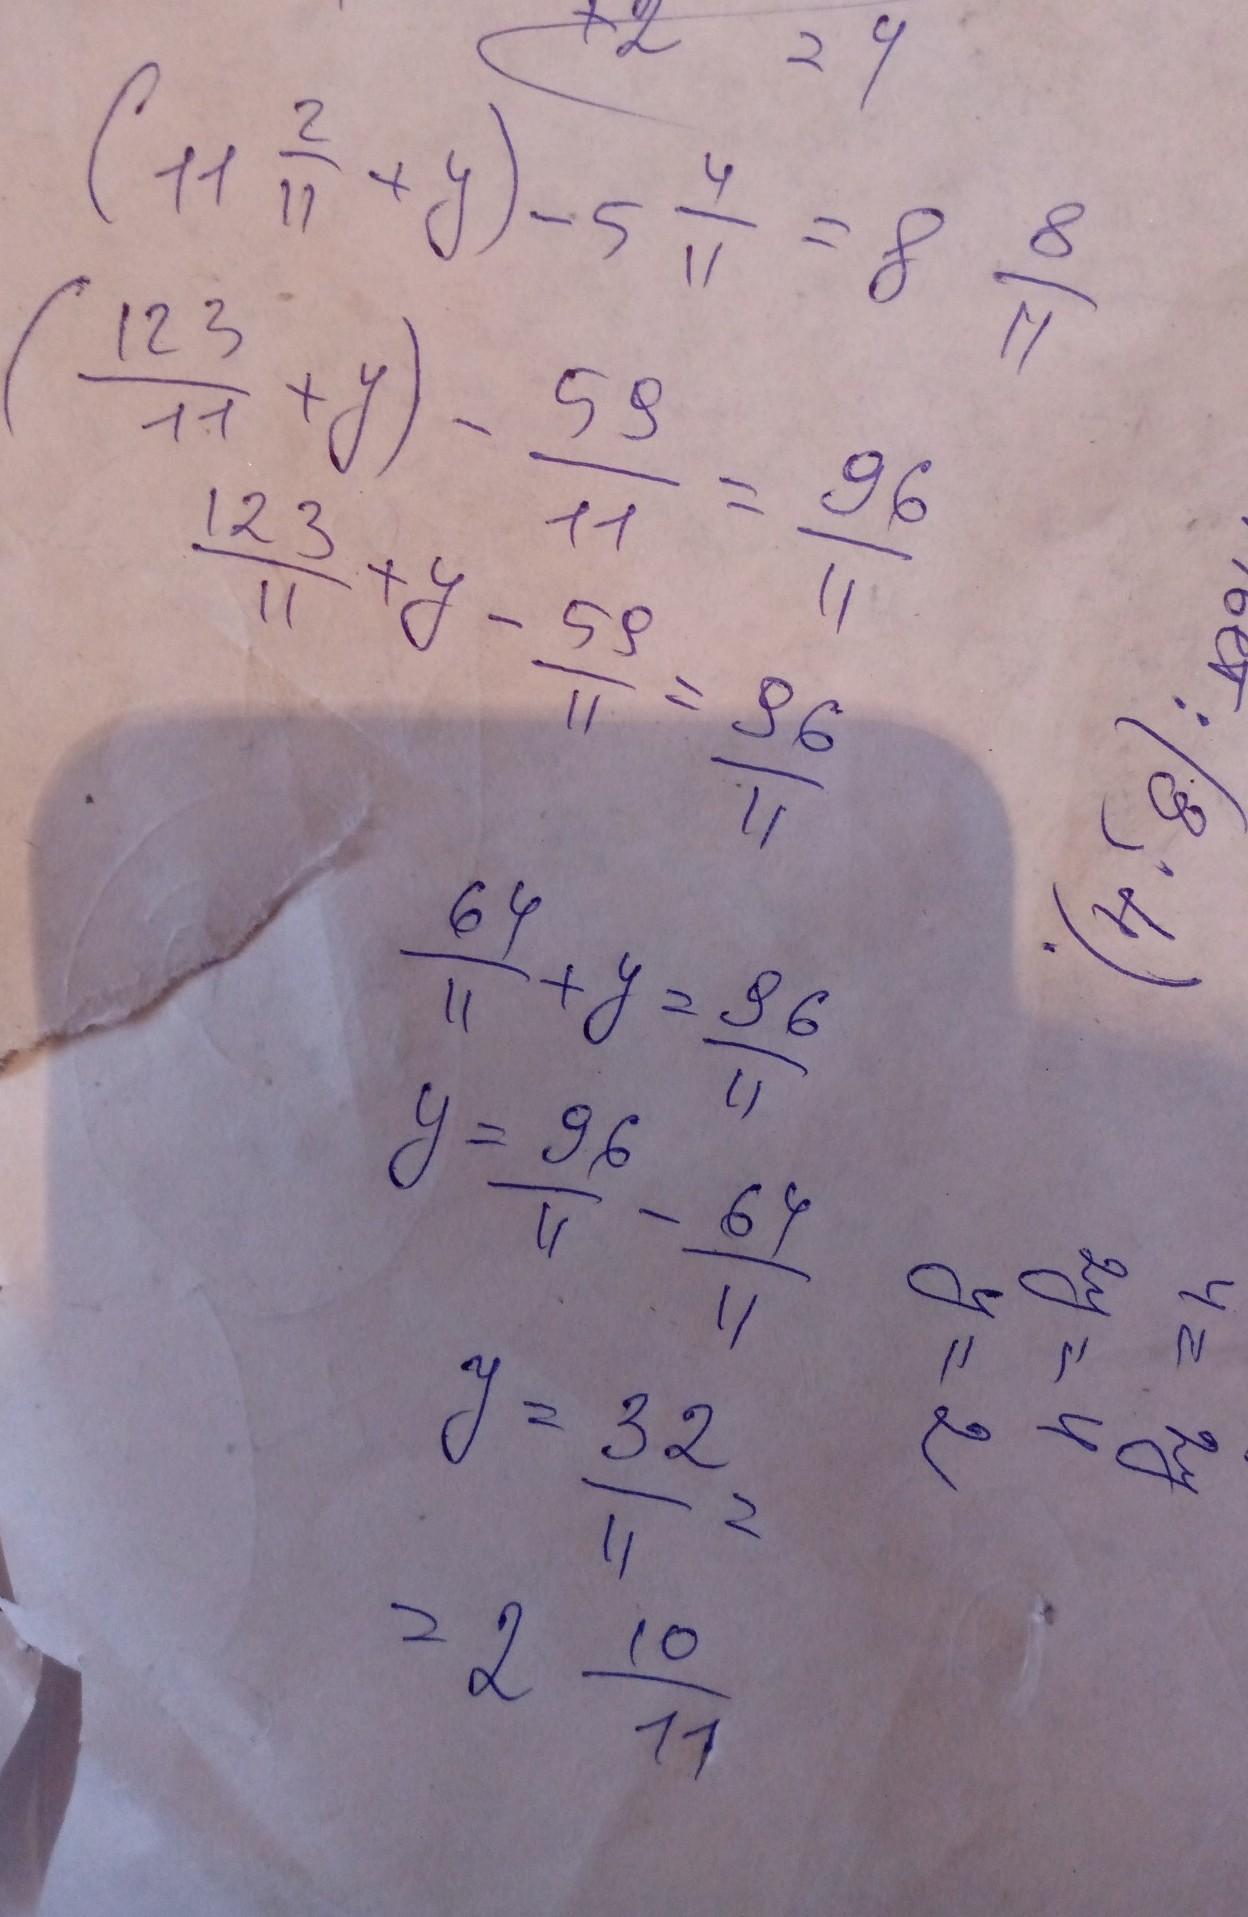 +2 = 4
(11 2/11 + y) - 5 4/11 = 8 8/11
(123/11 + y) - 59/11 = 96/11
123/11 + y - 59/11 = 96/11
64/11 + y = 96/11
y = 96/11 - 64/11
y = 32/11 =
= 2 10/11
4 = 2y
2y = 4
y = 2